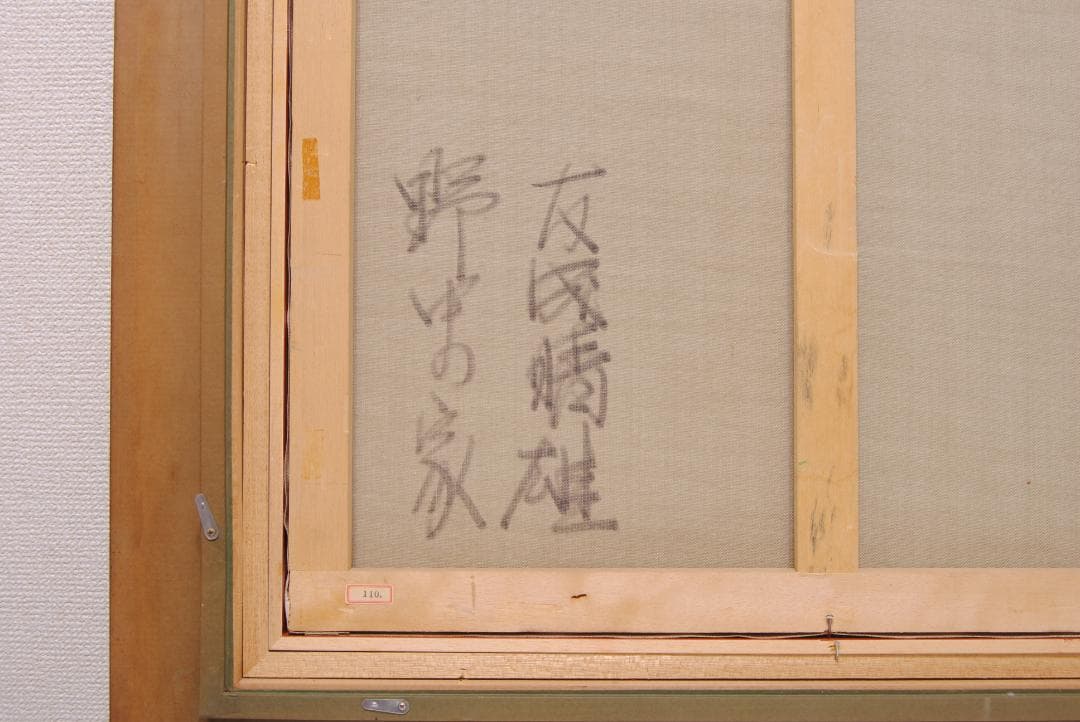 友成晴雄
野中の家
110.